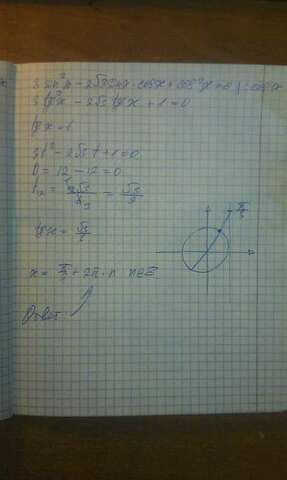 3 sin²x - 2√3 sinx · cosx + cos²x = 0 | : cos²x
3 tg²x - 2√3 tgx + 1 = 0
tg x = t
3t² - 2√3 t + 1 = 0
D = 12 - 12 = 0
= √3/3
tg x = √3/3
π/3
x = π/3 + 2π · n n∈Z
Ответ